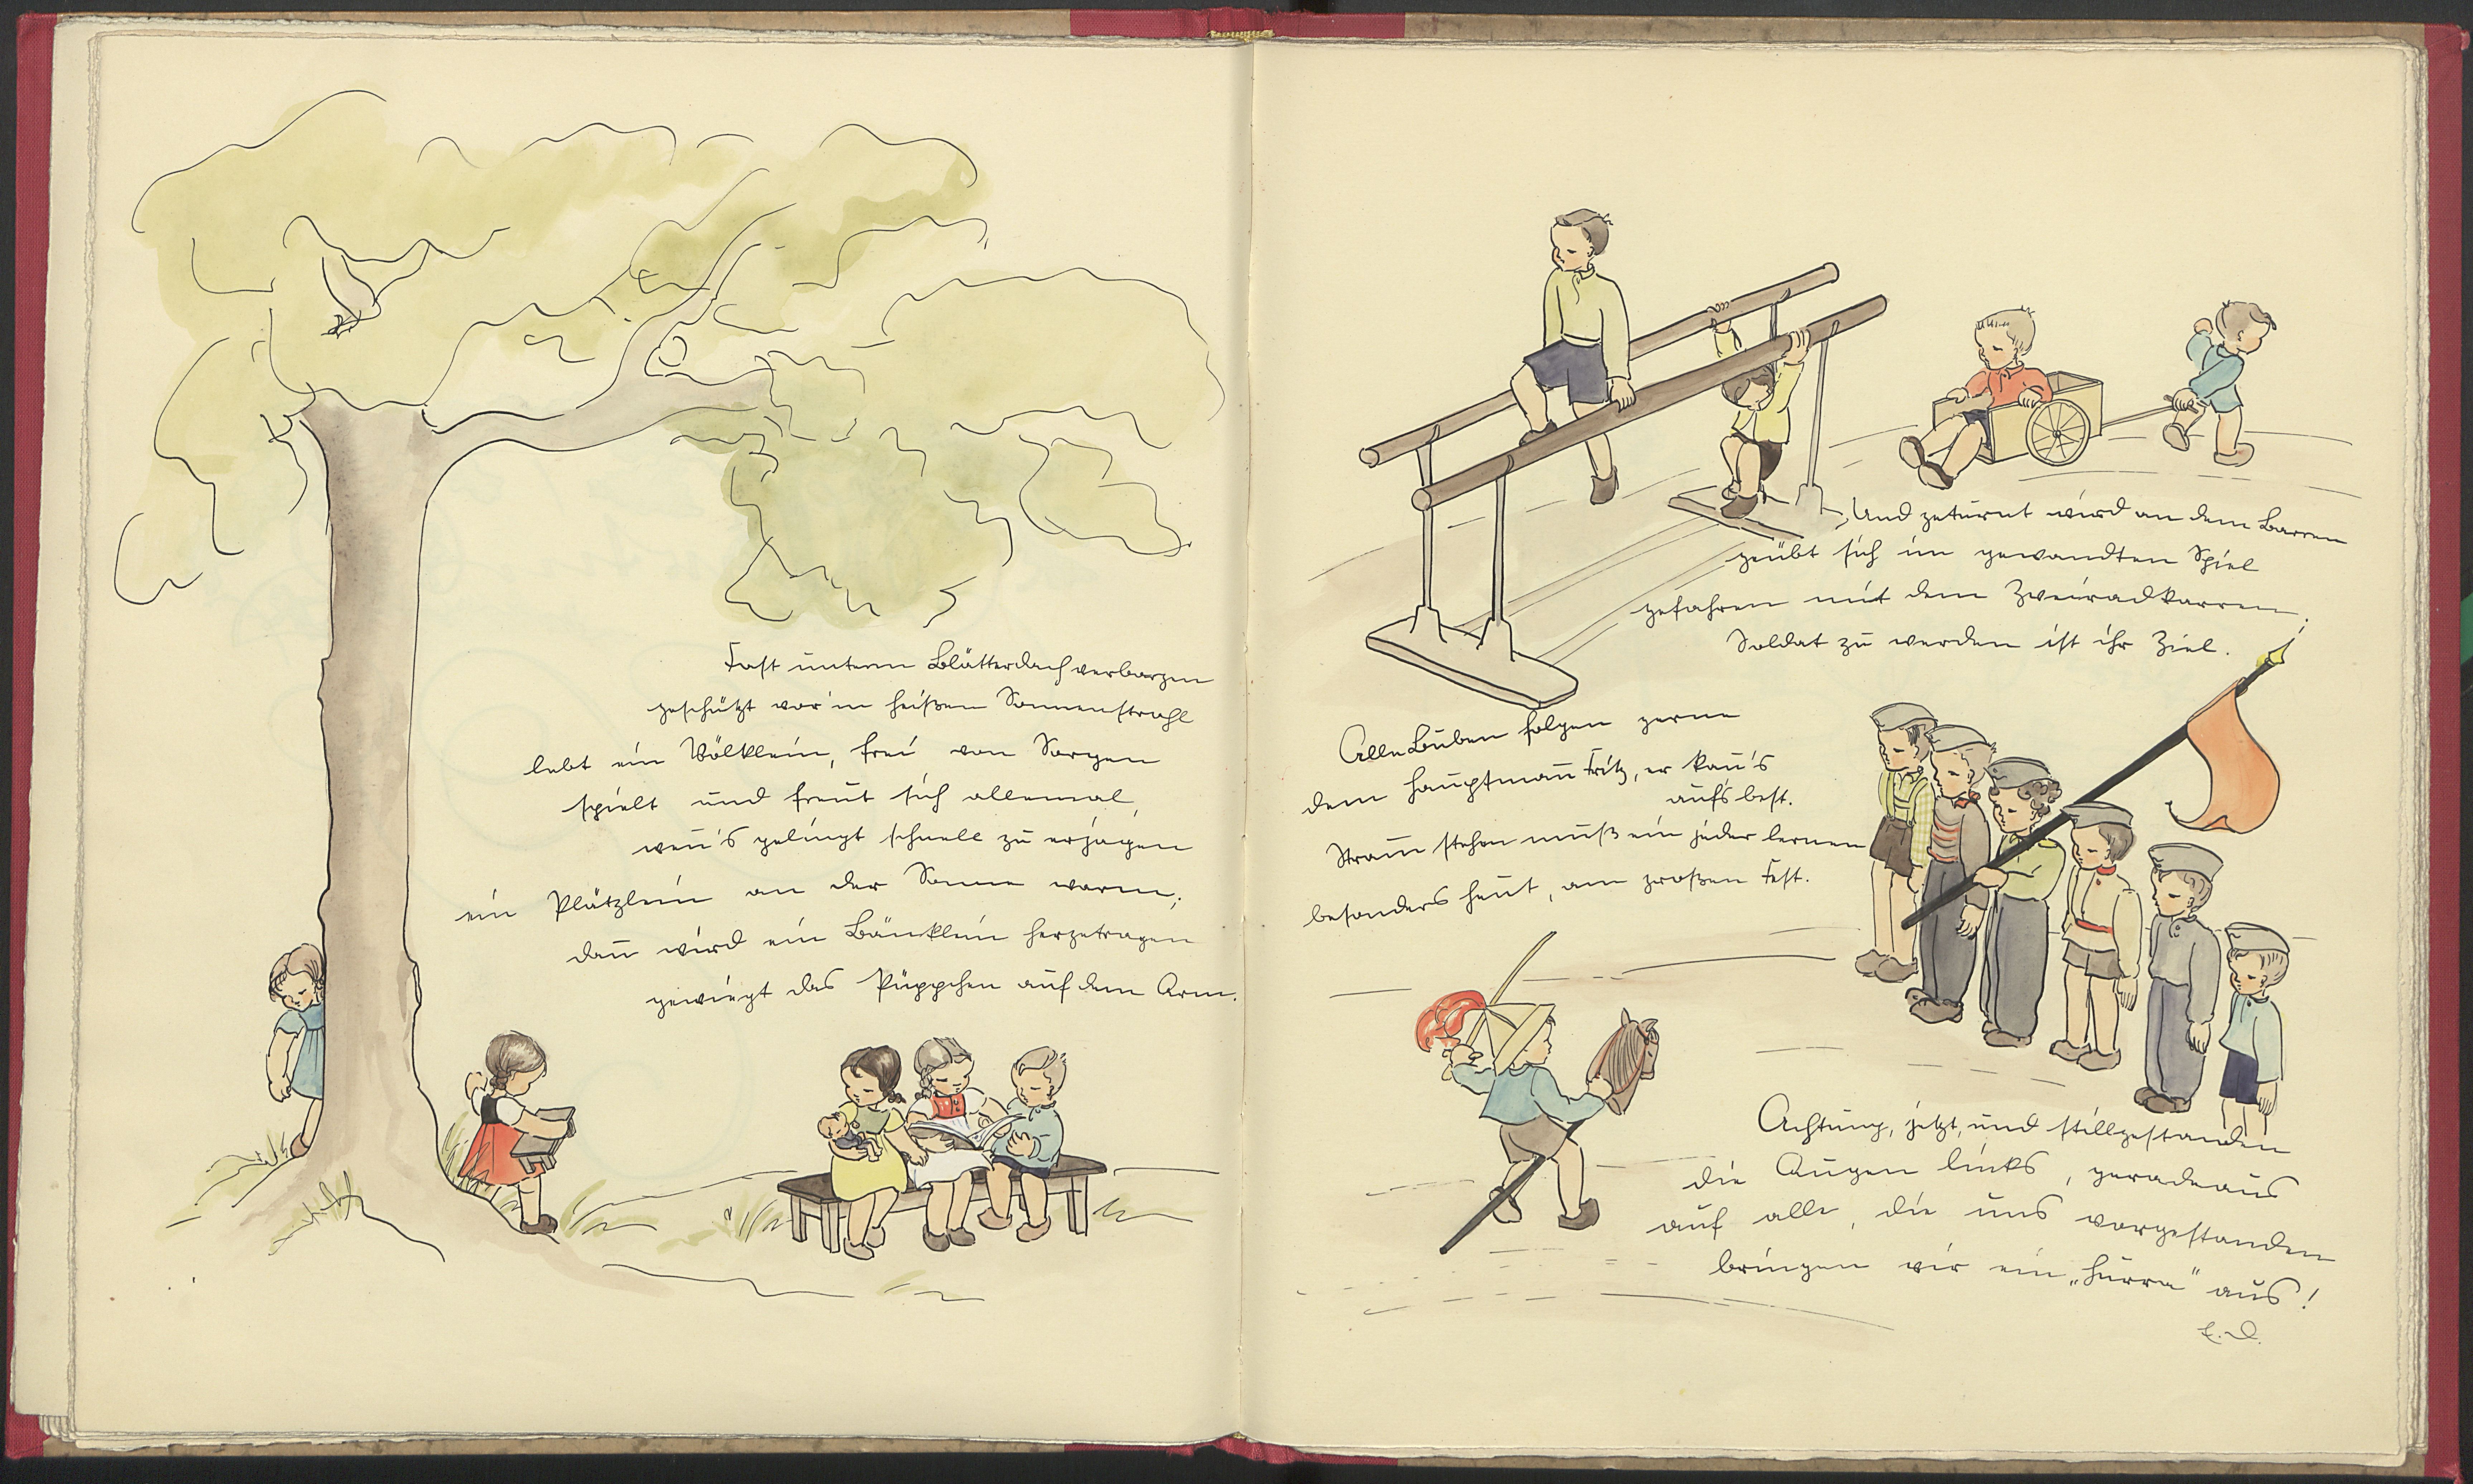 Fast unterm Blätterdach verborgen
geschützt vor'm heißen Sonnenstrahl
lebt ein Völklein, frei von Sorgen
spielt und freut sich allemal,
wen̄'s gelingt schnell zu erjagen
ein Plätzlein an der Sonne warm;
dan̄ wird ein Bänklein hergetragen
gewiegt das Püppchen auf dem Arm.
Und geturnt wird an dem Barren
geübt sich im gewandten Spiel
gefahren mit dem Zweiradkarren,
Soldat zu werden ist ihr Ziel.
Alle Buben folgen gerne
dem Hauptman̄ Fritz, er kan̄'s
aufs best.
Stram̄ stehen muß ein jeder lernen
besonders heut, am großen Fest.
Achtung, jetzt, und stillgestanden
die Augen links, geradeaus
auf alle, die uns vorgestanden
bringen wir ein „Hurra" aus!
E. D.